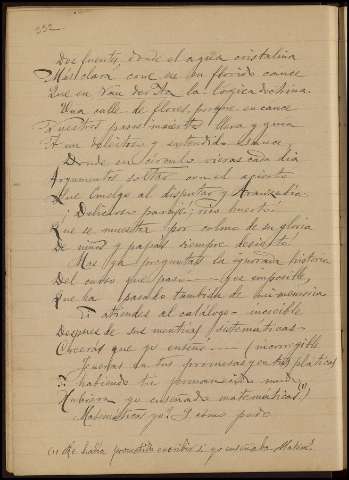 332
Dos fuentes, donde el agua cristalina
Mas clara corre en su florido cauce
Que en van der
la logica doctrina.
Una calle de flores, porque encauce
Tu vestros pasos inciertos lleva y guia
A un delicioso y estendido sauce
Donde en circulo vieras cada dia
Argumentos soltar con el acierto
Que
al disputar y Arauzabia.
¡Delicioso paraje; pero huerto
Que se muestra por colmo de su gloria
De niños y papas siempre desierto
Mas ya preguntas la ignorada historia
Del curso que pasó — Es imposible,
Que ha pasado tambien de mi memoria
Tu atiendes al catalogo —
Despues de sus mentiras sistematicas
Creeras que yo enseñé — (incorregible
en tus promesas y en tus platicas
Y habiendo tu permanecido mudo
Hubiera yo enseñado matematicas (1)
Matematicas yo? Y como pudo
(1) Me habia prometido escribir si yo enseñaba Matem.s